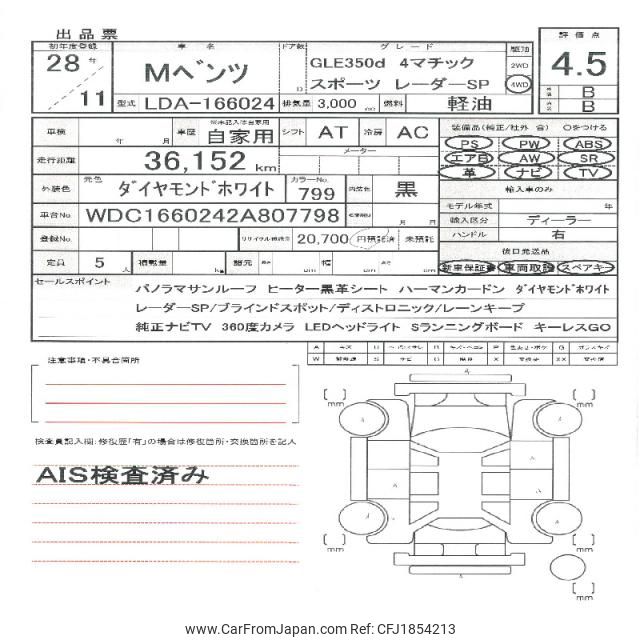 出品票
初年度登録 車名 ドア数 グレード 駆動 評価点
28年 / 11 Mベンツ D GLE350d 4マチック スポーツ レーダーSP 2WD 4WD 4.5
型式 LDA-166024 排気量 3,000 cc 燃料 軽油 B B
車検 年 月 車歴 ※未記入は自家用 自家用 シフト AT 冷房 AC 装備品(純正/社外 含) ○をつける
PS PW ABS
走行距離 36,152 km メーター エアB AW SR
革 ナビ TV
外装色 元色 ダイヤモンドホワイト カラーNo. 799 内装色 黒 輸入車のみ
モデル年式 年
車台No. WDC1660242A807798 月 日 輸入区分 ディーラー
登録No. リサイクル預託金 20,700 円預託済 未預託 ハンドル 右
後日発送品
定員 5人 積載量 kg 諸元 長さ cm 幅 cm 高さ cm 新車保証書 車両取説 スペアキー
セールスポイント
パノラマサンルーフ ヒーター黒革シート ハーマンカードン ダイヤモンドホワイト
レーダーSP/ブラインドスポット/ディストロニック/レーンキープ
純正ナビTV 360度カメラ LEDヘッドライト Sランニングボード キーレスGO
注意事項・不具合箇所
検査員記入欄:修復歴「有」の場合は修復箇所・交換箇所を記入
AIS検査済み
mm
mm
mm
mm
mm
www.CarFromJapan.com Ref: CFJ1854213